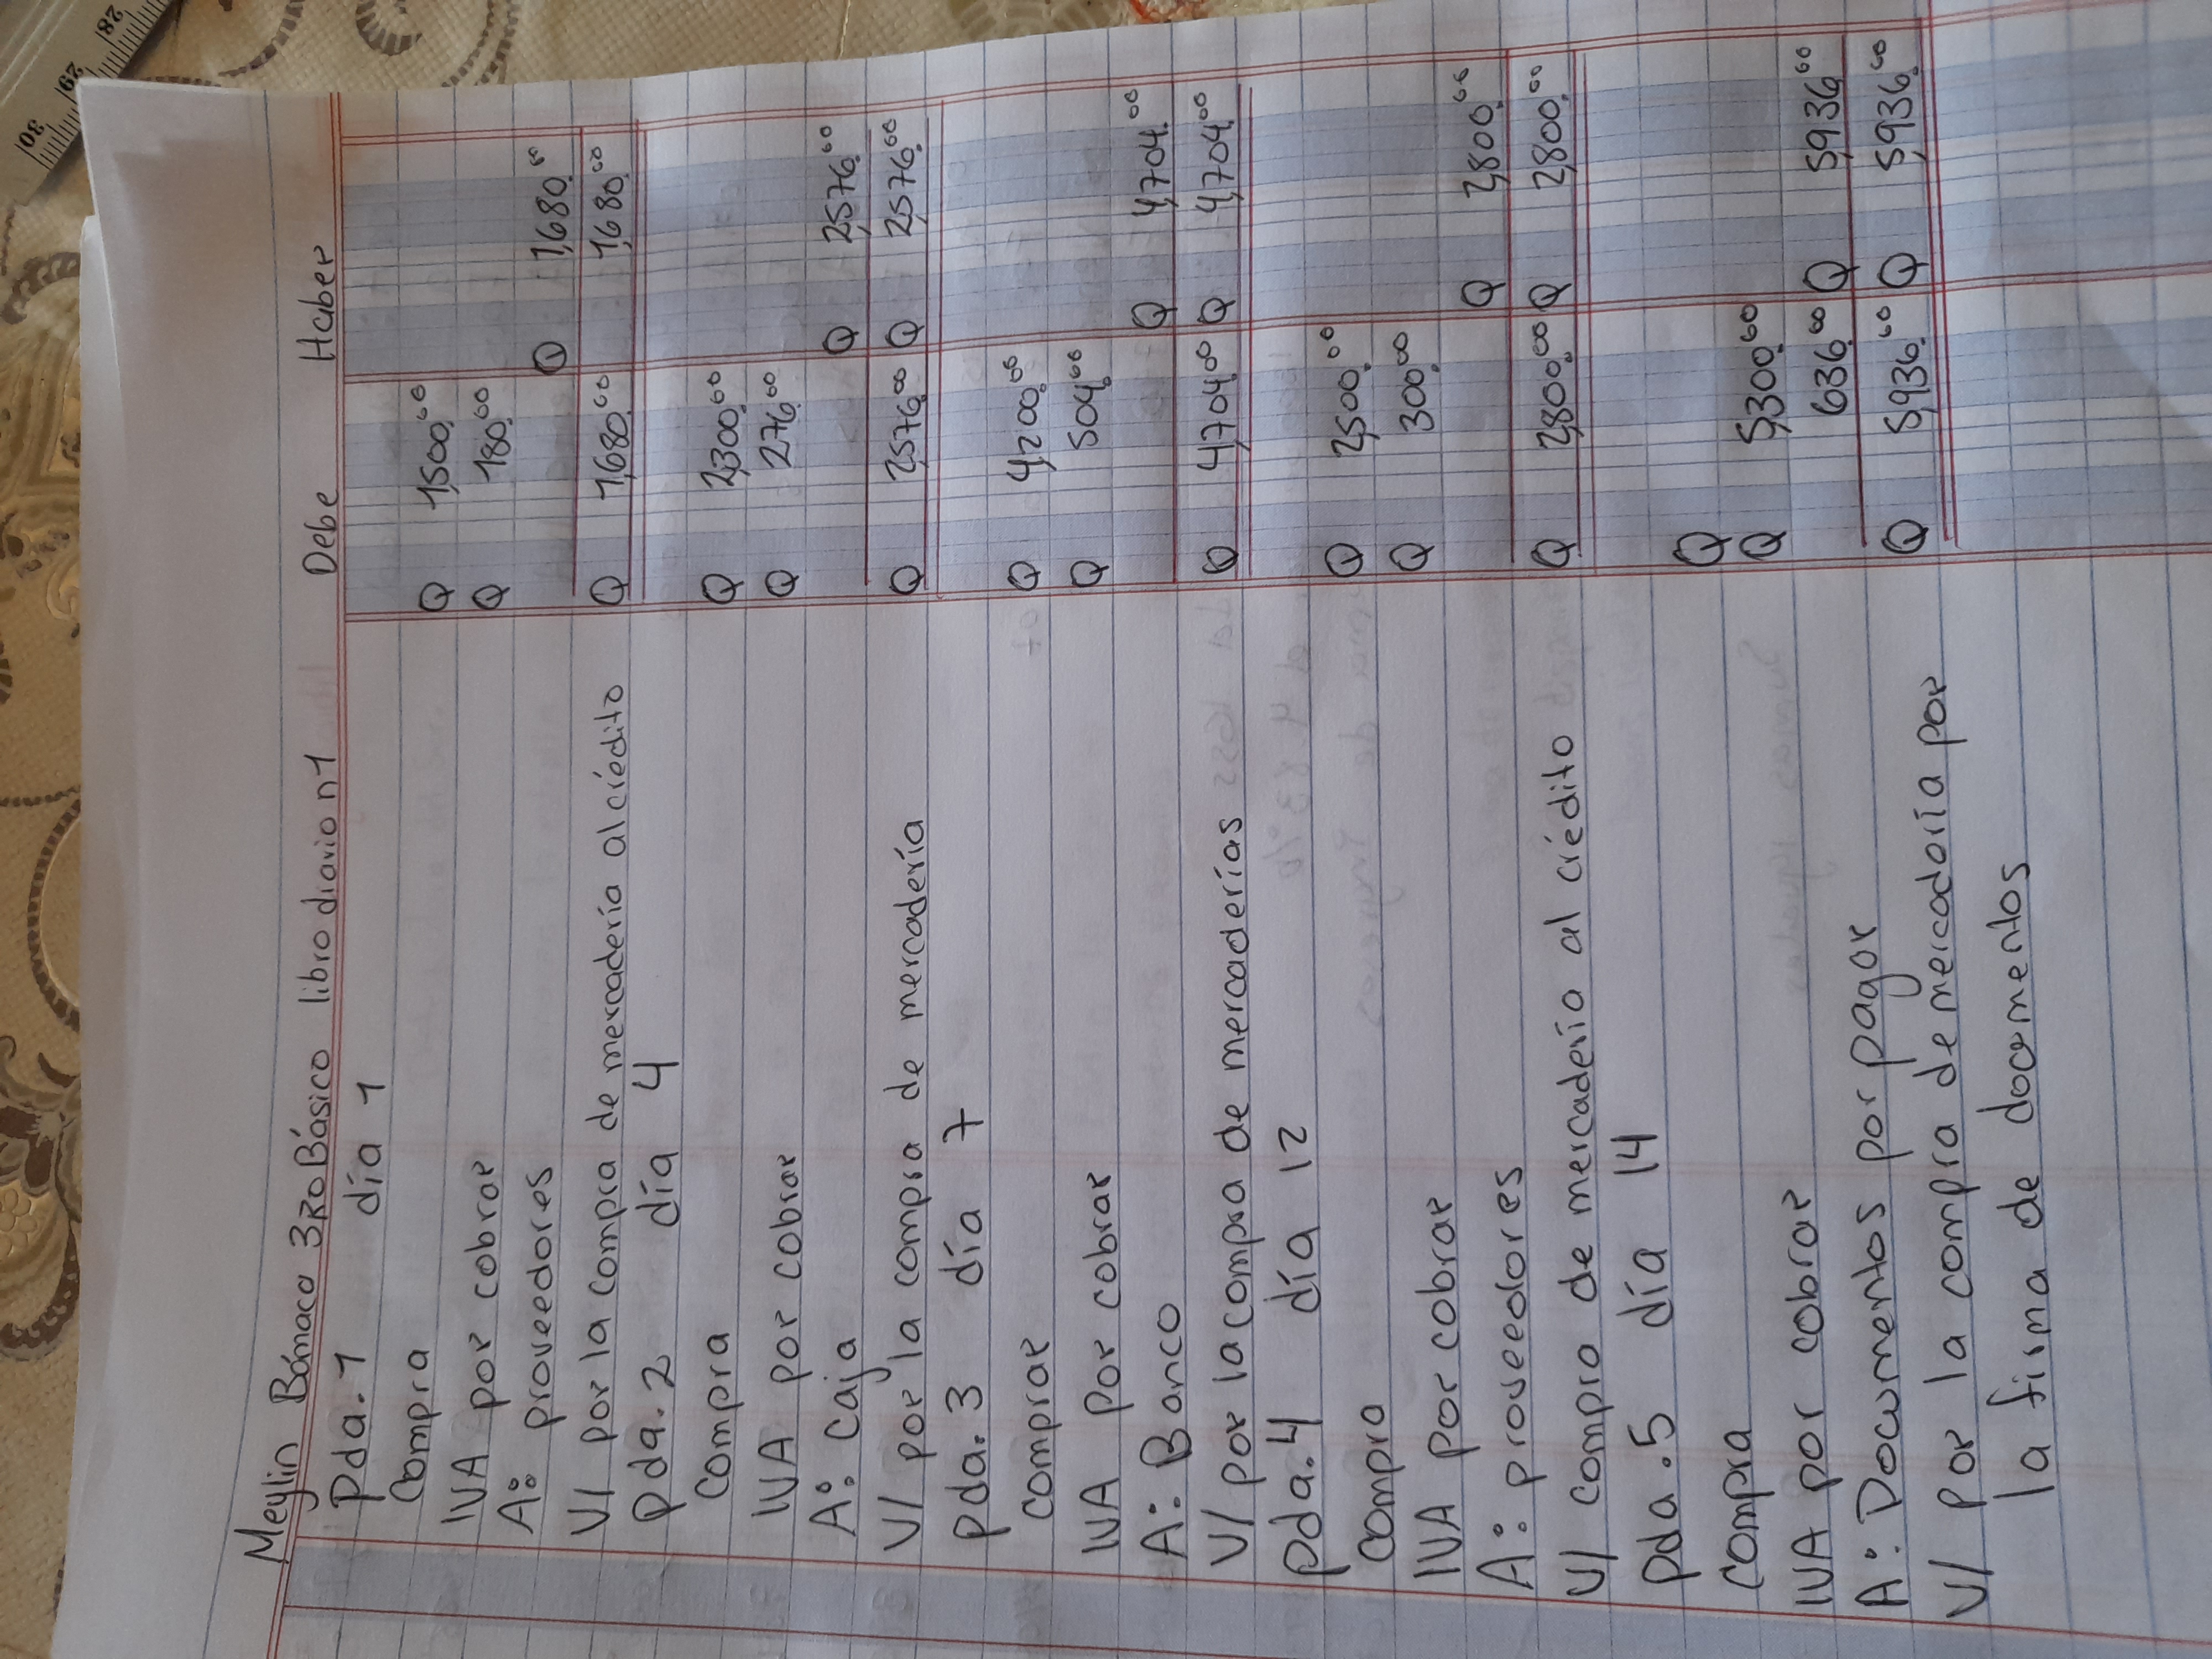 Meylin Bámaco 3ro Básico libro diario n1 Debe Haber
Pda. 1 día 1
Compra Q 1,500.00
IVA por cobrar Q 180.00
A: proveedores Q 1,680.00
V/ por la compra de mercadería al crédito Q 1,680.00 1,680.00
Pda. 2 día 4
Compra Q 2,300.00
IVA por cobrar Q 276.00
A: caja Q 2,576.00
V/ por la compra de mercadería Q 2,576.00 Q 2,576.00
Pda. 3 día 7
Comprar Q 4,200.00
IVA por cobrar Q 504.00
A: Banco Q 4,704.00
V/ por la compra de mercaderías Q 4,704.00 Q 4,704.00
Pda. 4 día 12
Compra Q 2,500.00
IVA por cobrar Q 300.00
A: proveedores Q 2,800.00
V/ compra de mercadería al crédito Q 2,800.00 Q 2,800.00
Pda. 5 día 14 Q
Compra Q 5,300.00
IVA por cobrar 636.00 Q 5,936.00
A: Documentos por pagar Q 5,936.00 Q 5,936.00
V/ Por la compra de mercadoría por
la firma de documentos
28
29
30